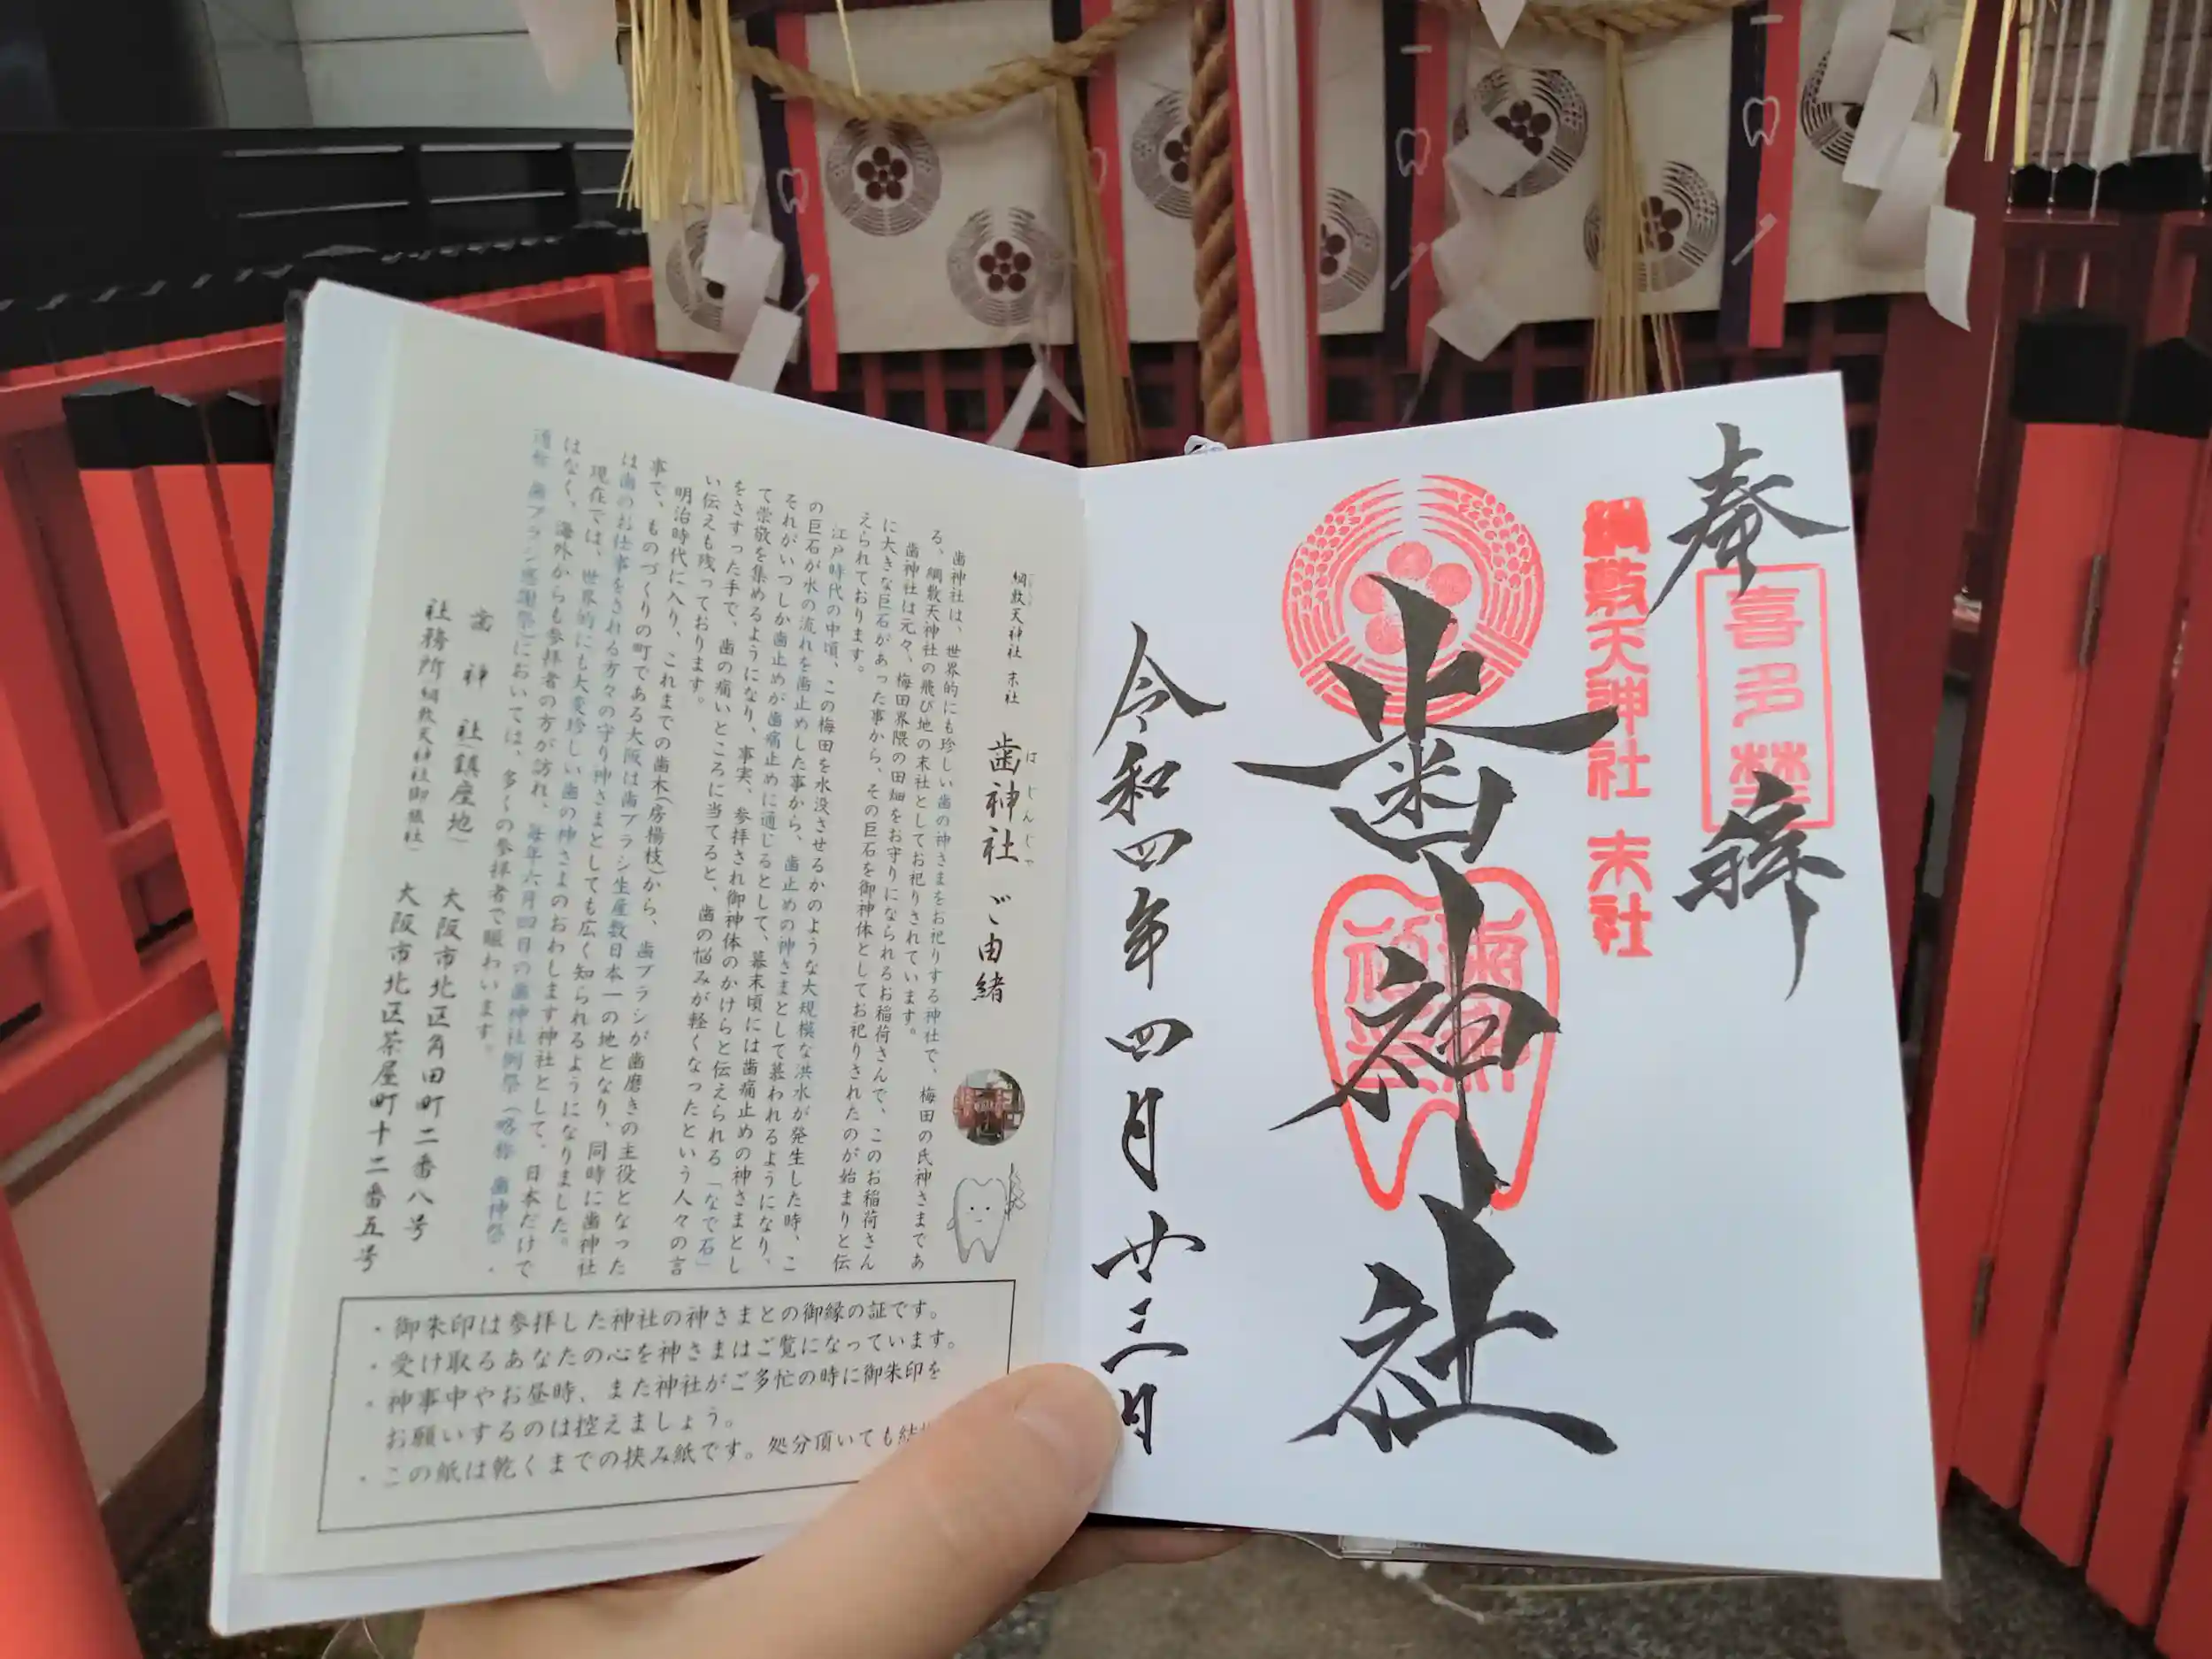 奉拝
喜多埜
綱敷天神社 末社
歯神社
令和四年四月廿三日
綱敷天神社 末社
歯神社 ご由緒
はじんじゃ
歯神社は、世界的にも珍しい歯の神さまをお祀りする神社で、梅田の氏神さまであ
る、綱敷天神社の飛び地の末社としてお祀りされています。
歯神社は元々、梅田界隈の田畑をお守りになられるお稲荷さんで、このお稲荷さん
に大きな巨石があった事から、その巨石を御神体としてお祀りされたのが始まりと伝
えられております。
江戸時代の中頃、この梅田を水没させるかのような大規模な洪水が発生した時、こ
の巨石が水の流れを歯止めした事から、歯止めの神さまとして慕われるようになり、
それがいつしか歯止めが歯痛止めに通じるとして、幕末頃には歯痛止めの神さまとし
て崇敬を集めるようになり、事実、参拝され御神体のかけらと伝えられる「なで石」
をさすった手で、歯の痛いところに当てると、歯の悩みが軽くなったという人々の言
い伝えも残っております。
明治時代に入り、これまでの歯木(房楊枝)から、歯ブラシが歯磨きの主役となった
事で、ものづくりの町である大阪は歯ブラシ生産数日本一の地となり、同時に歯神社
は歯のお仕事をされる方々の守り神さまとしても広く知られるようになりました。
現在では、世界的にも大変珍しい歯の神さまのおわします神社として、日本だけで
はなく、海外からも参拝者の方が訪れ、毎年六月四日の歯神社例祭(略称 歯神祭・
通称 歯ブラシ感謝祭)においては、多くの参拝者で賑わいます。
歯神社(鎮座地) 大阪市北区角田町二番八号
社務所(綱敷天神社御旅社) 大阪市北区茶屋町十二番五号
・御朱印は参拝した神社の神さまとの御縁の証です。
・受け取るあなたの心を神さまはご覧になっています。
・神事中やお昼時、また神社がご多忙の時に御朱印を
お願いするのは控えましょう。
・この紙は乾くまでの挟み紙です。処分頂いても結